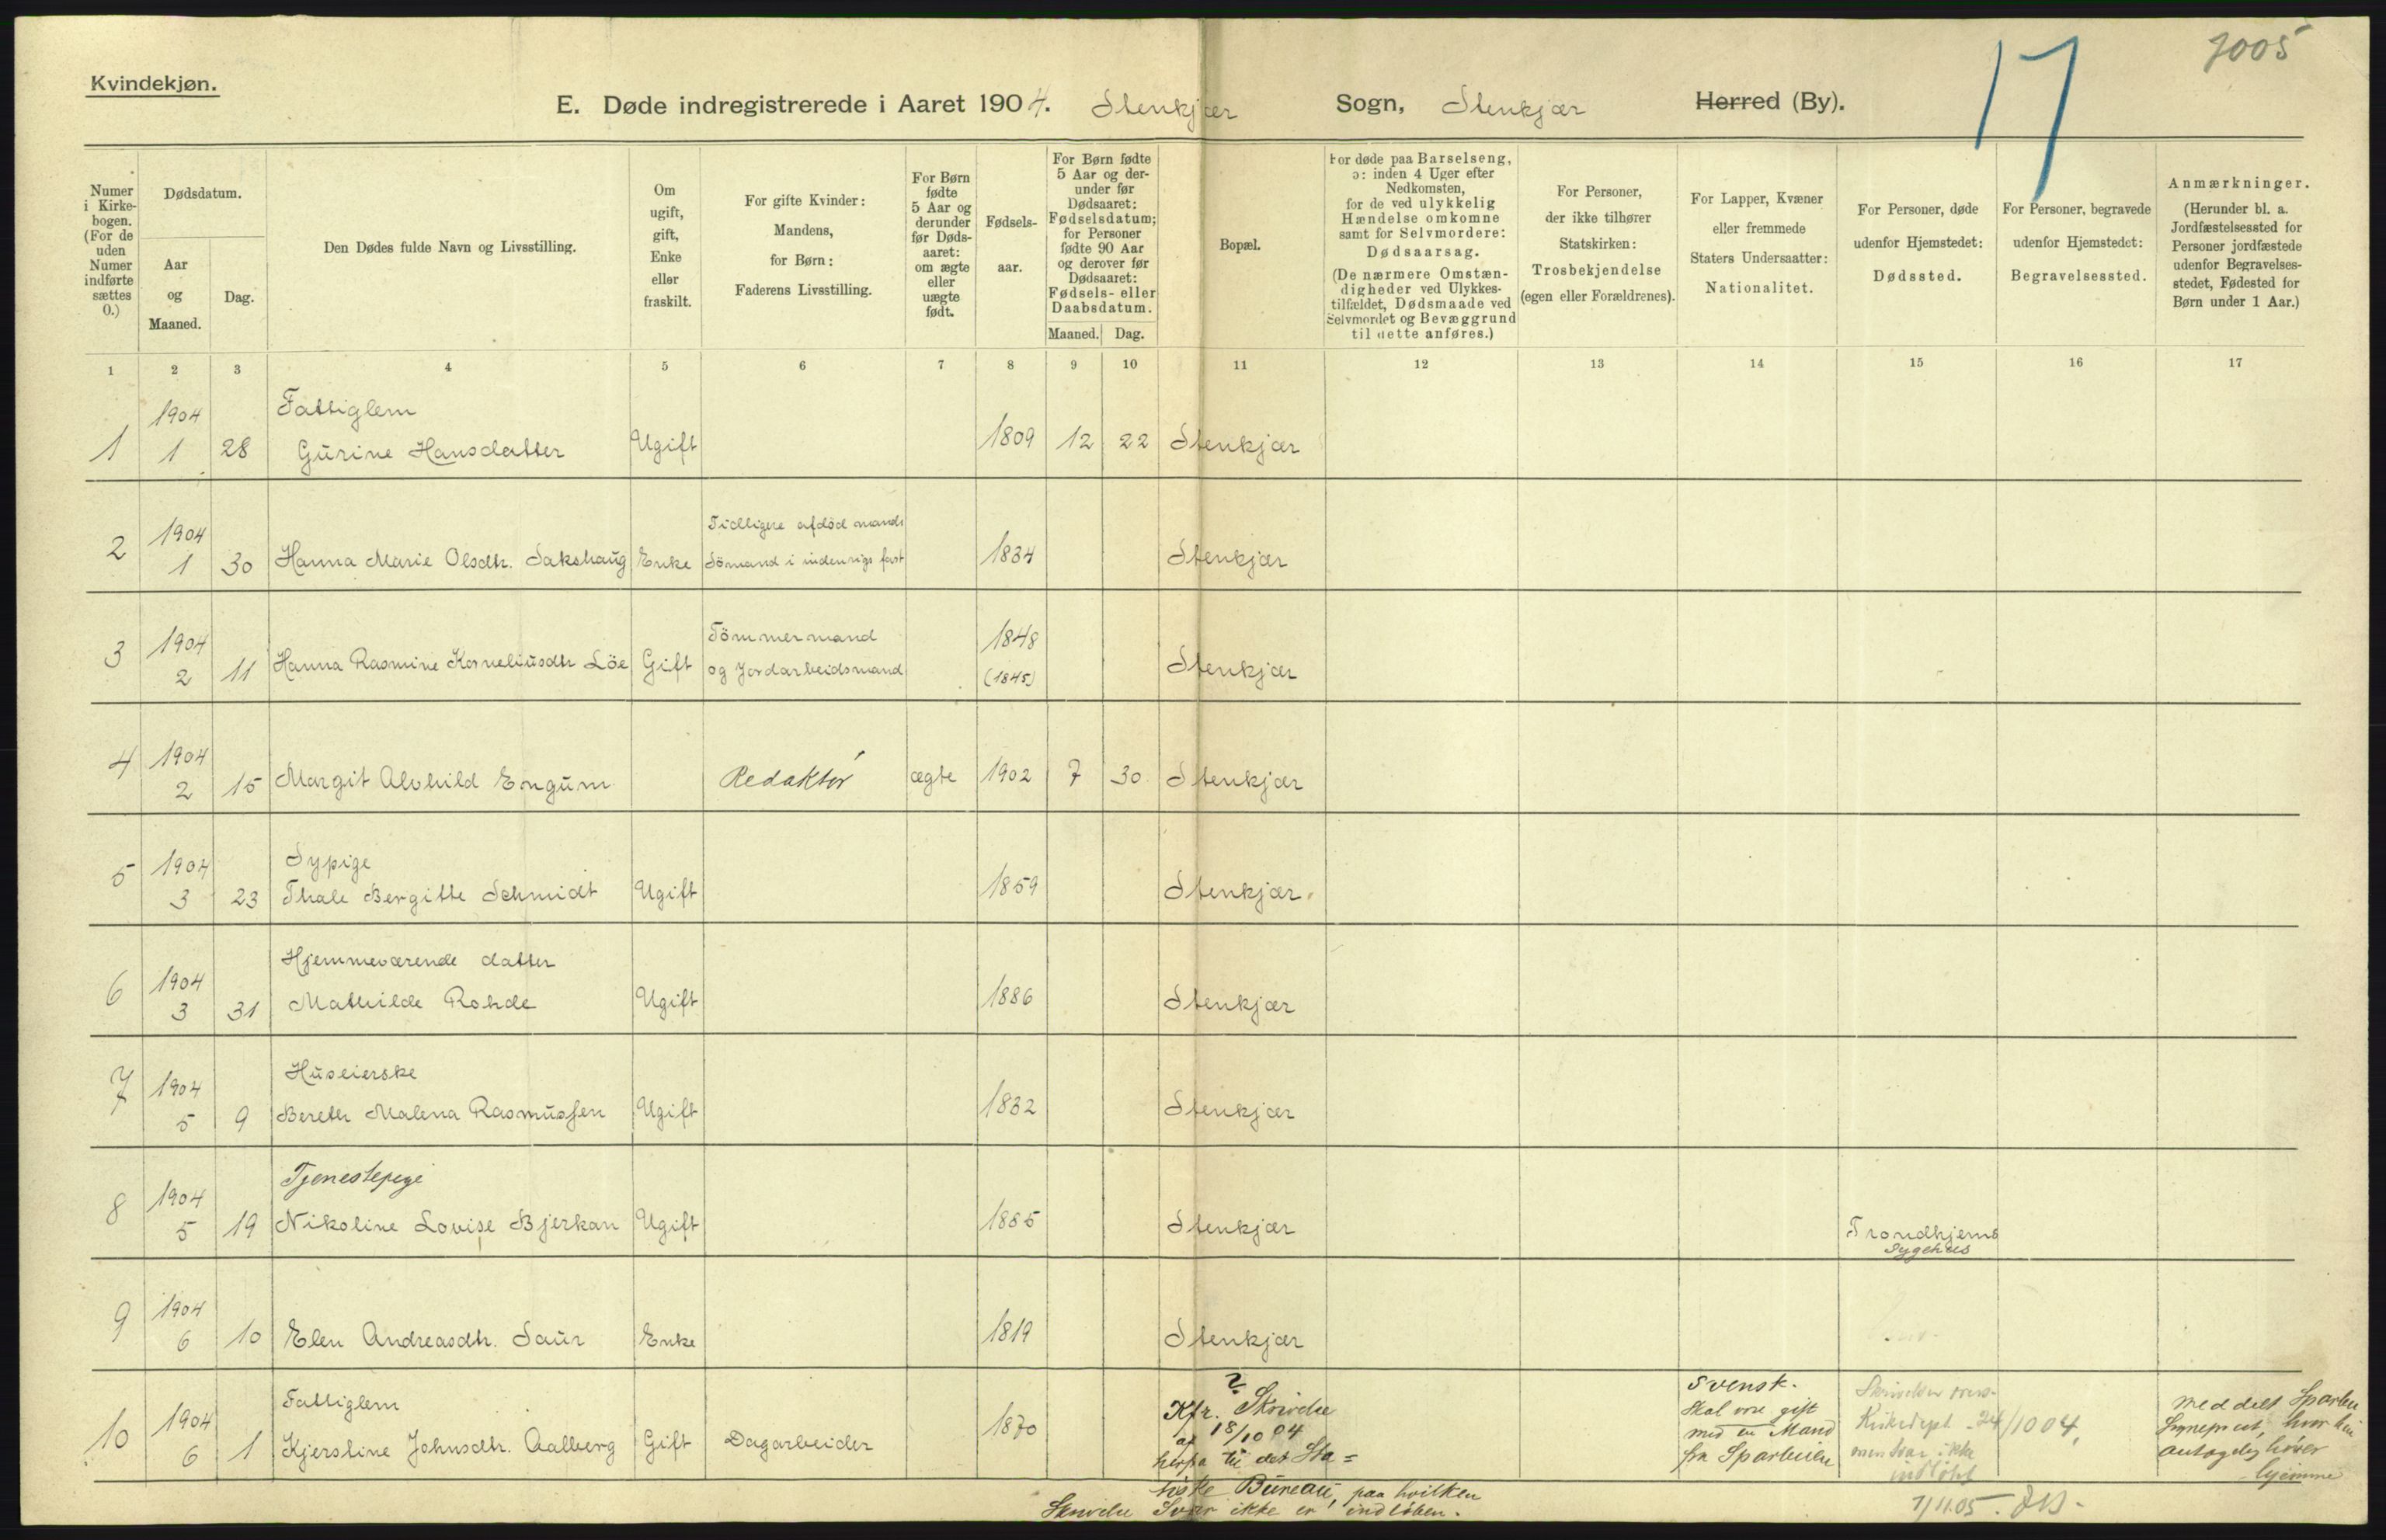 Kvindekjøn.
7005
17
E. Døde indregistrerede i Aaret 1904. Stenkjær Sogn, Stenkjær Herred (By).
Numer i Kirkebogen. (For de uden Numer indførte sættes 0.)
Dødsdatum.
Aar og Maaned.
Dag.
Den Dødes fulde Navn og Livsstilling.
Om ugift, gift, Enke eller fraskilt.
For gifte Kvinder: Mandens, for Børn: Faderens Livsstilling.
For Børn fødte 5 Aar og derunder før Dødsaaret: om ægte eller uægte født.
Fødselsaar.
For Børn fødte 5 Aar og derunder før Dødsaaret: Fødselsdatum; for Personer fødte 90 Aar og derover før Dødsaaret: Fødsels- eller Daabsdatum.
Maaned. Dag.
Bopæl.
For døde paa Barselseng, ɔ: inden 4 Uger efter Nedkomsten, for de ved ulykkelig Hændelse omkomne samt for Selvmordere: Dødsaarsag. (De nærmere Omstændigheder ved Ulykkestilfældet, Dødsmaade ved Selvmordet og Bevæggrund til dette anføres.)
For Personer, der ikke tilhører Statskirken: Trosbekjendelse (egen eller Forældrenes).
For Lapper, Kvæner eller fremmede Staters Undersaatter: Nationalitet.
For Personer, døde udenfor Hjemstedet: Dødssted.
For Personer, begravede udenfor Hjemstedet: Begravelsessted.
Anmærkninger. (Herunder bl. a. Jordfæstelsessted for Personer jordfæstede udenfor Begravelsesstedet, Fødested for Børn under 1 Aar.)
1 2 3 4 5 6 7 8 9 10 11 12 13 14 15 16 17
1904 Fattiglem
1 1 28 Gurine Hansdatter Ugift 1809 12 22 Stenkjær
1904 Tidligere afdød mands
2 1 30 Hanna Marie Olsdtr. Sakshaug Enke Sömand i indenrigs fart 1834 Stenkjær
1904 Tömmermand 1848
3 2 11 Hanna Rasmine Korneliusdtr Löe Gift og Jordarbeidsmand (1845) Stenkjær
1904
4 2 15 Margit Alvhild Engum Redaktör ægte 1902 7 30 Stenkjær
1904 Sypige
5 3 23 Thale Bergitte Schmidt Ugift 1859 Stenkjær
1904 Hjemmeværende datter
6 3 31 Mathilde Rohde Ugift 1886 Stenkjær
1904 Huseierske
7 5 9 Bereth Malena Rasmussen Ugift 1832 Stenkjær
1904 Tjenestepige
8 5 19 Nikoline Lovise Bjerkan Ugift 1885 Stenkjær Trondhjems
Sygehus
1904
9 6 10 Elen Andreasdtr. Saur Enke 1819 Stenkjær
1904 Fattiglem
10 6 1 Kjerstine Johnsdtr. Aalberg Gift Dagarbeider 1870
?
Kfr. Skrivelse
af 18/10 04
herfra til det Sta=
tiske Bureau, paa hvilken
Skrivelse Svar ikke er indløben.
Svensk.
Skal være gift
med en Mand
fra Sparbuen
24/10 04,
men svar ikke
indløbet
7/11.05.
meddelt Sparbu
Sogneprest, hvor hun
antagelig hører
hjemme